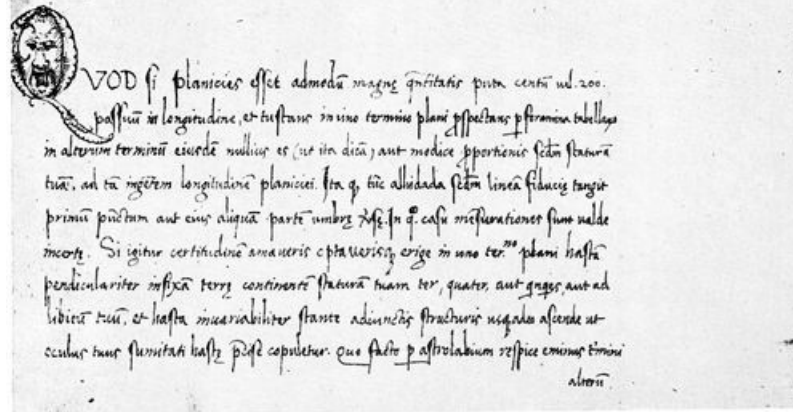 QVOD si planicies esset admodū magnę q̄ntitatis puta centū ul. 200.
passuum in longitudine, et tu stans in uno termino plani ꝓspectans ꝑ foramina tabellaꝝ
in alterum terminū eiusdē nullius es (ut ita dicā) aut modice ꝓportionis scd̄m staturā
tuā, ad tā ingētem longitudinē planiciei. Ita ꝙ tūc alhidada scd̄m lineā fiducię tangit
primū pūctum aut eius aliquā partē umbrę ṽsę. In q̊ casu mesurationes sunt valde
incertę. Si igitur certitudinē amaveris optaverisꝗ erige in uno ter.no plani hastā
pendiculariter infixā terrę continentē staturā tuam ter, quater, aut aut ad
libitū tuū, et hasta invariabiliter stante adiunctis structuris usqadeo ascende ut
oculus tuus sūmitati hastę p̄cise copuletur. Quo facto ꝑ astrolabium respice eminus t̄mini
alterū